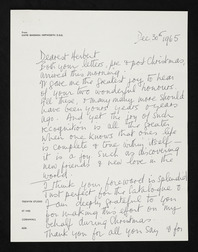 From
DAME BARBARA HEPWORTH D.B.E.
Dec 30th 1965
Dearest Herbert
Both your letters, pre & post Christmas,
arrived this morning.
It gave me the greatest joy to hear
of your two wonderful honours.
All these, & many many more should
have been yours years & years
ago. And yet the joy of such
recognition is all the greater
when one knows that one's life
is complete & true within itself –
it is a joy such as discovering
new friends & new love in the
world.
I think your foreword is splendid
& just perfect for the Catalogue &
I am deeply grateful to you
for making this effort on my
behalf during Christmas.
Thank you for all you say & for
TREWYN STUDIO
ST IVES
CORNWALL